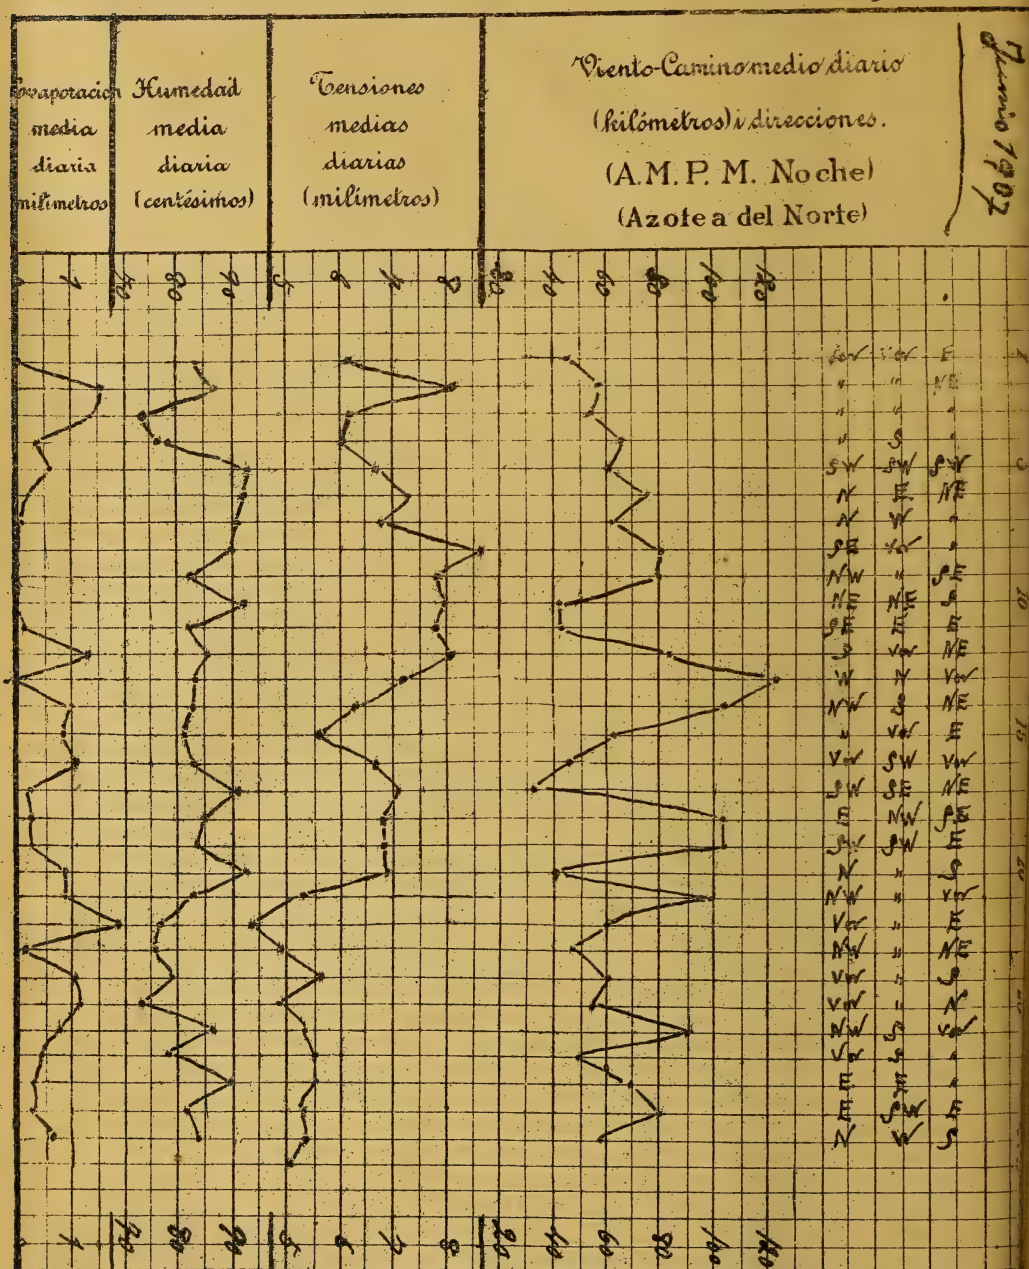 Evaporación
media
diaria
milimetros
Humedad
media
diaria
(centésimos)
Tensiones
medias
diarias
(milimetros)
Viento-Camino medio diario
(kilómetros) i direcciones.
(A.M. P. M. Noche)
(Azotea del Norte)
Junio 1902
1 70 80 90 5 6 7 8 20 40 60 80 100 120
E
" " NE
" " "
" S "
SW SW SW
N E NE
N W "
SE Var "
NW " SE
NE NE S 10
SE E E
S Var NE
W N Var
NW S NE
" Var E 15
Var SW Var
SW SE NE
E NW SE
SW SW E
N " S 20
NW " Var
Var " E
NW " NE
Var " S
Var " N
NW S Var
Var S "
E E "
E SW E
N W S
1 70 80 90 5 6 7 8 20 40 60 80 100 120